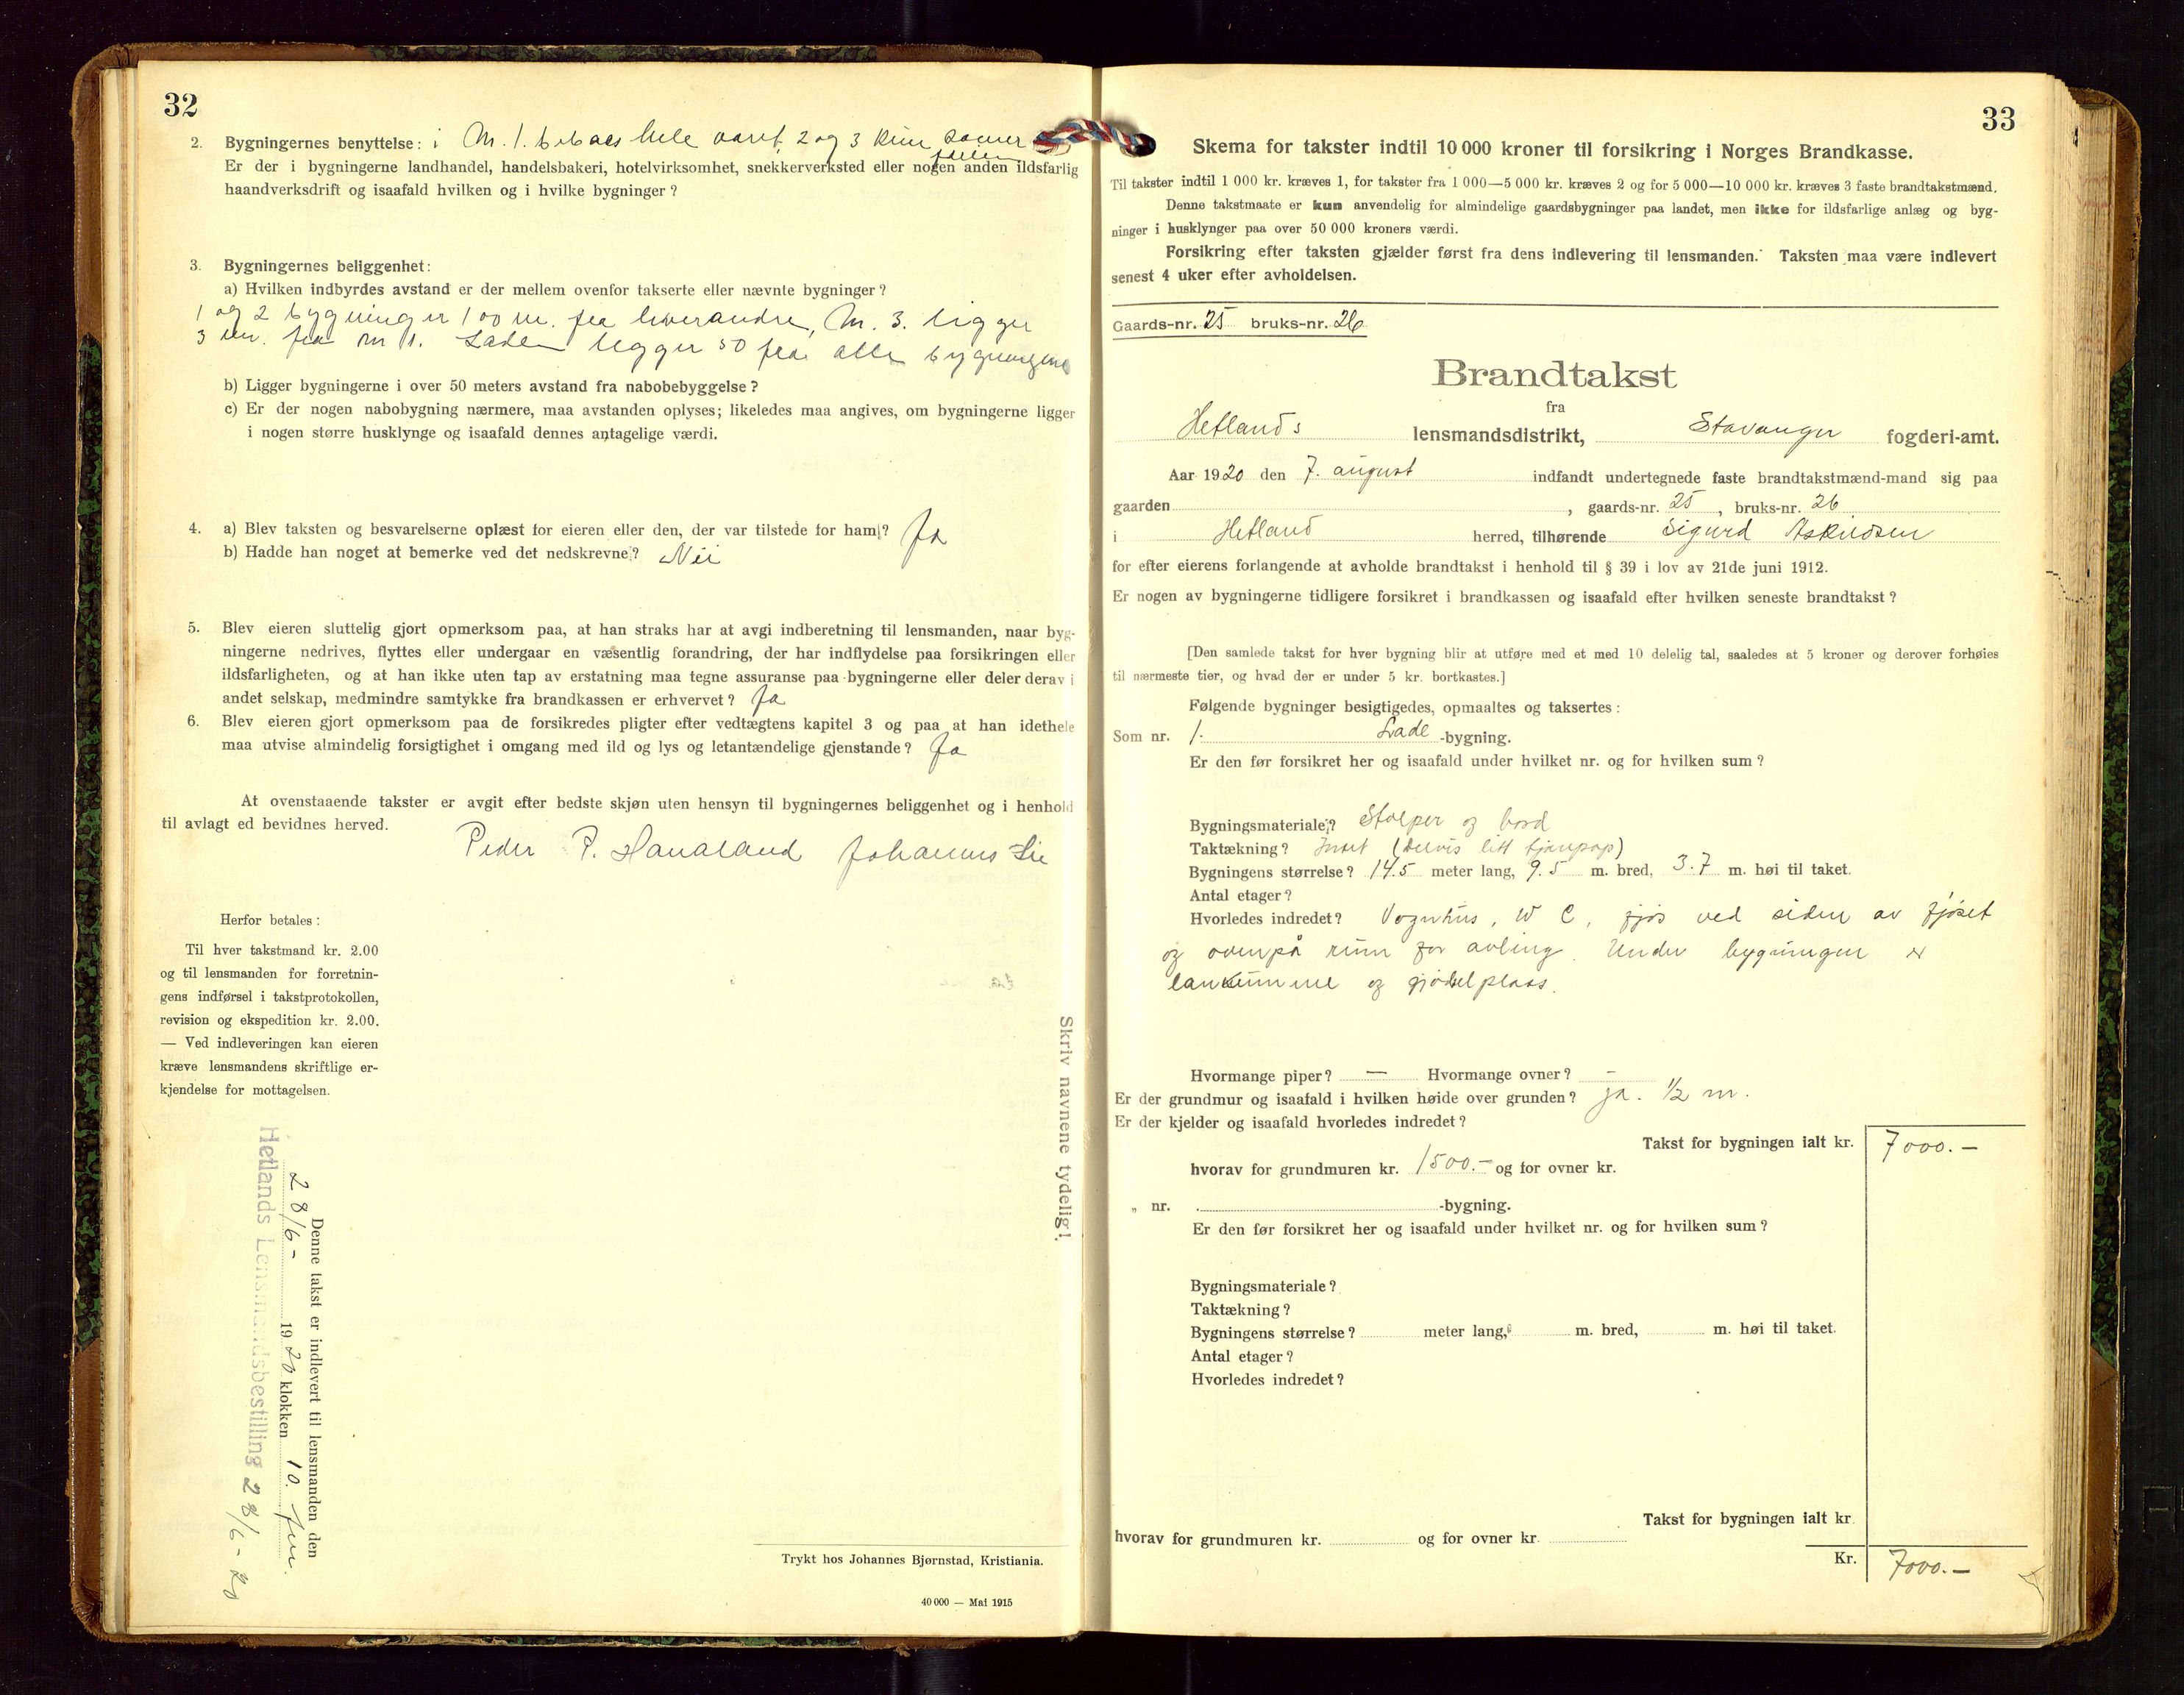 32
2. Bygningernes benyttelse: i Nr. 1. beboes hele aaret, 2 og 3 kun somer
Er der i bygningerne landhandel, handelsbakeri, hotelvirksomhet, snekkerverksted eller nogen anden ildsfarlig
haandverksdrift og isaafald hvilken og i hvilke bygninger?
3. Bygningernes beliggenhet:
a) Hvilken indbyrdes avstand er der mellem ovenfor takserte eller nævnte bygninger?
1 og 2 bygninger 100 m. fra hverandre, Nr. 3. ligger
3 m. fra Nr 1. Laden ligger 50 fra alle bygningene
b) Ligger bygningerne i over 50 meters avstand fra nabobebyggelse?
c) Er der nogen nabobygning nærmere, maa avstanden oplyses; likeledes maa angives, om bygningerne ligger
i nogen større husklynge og isaafald dennes antagelige værdi.
4. a) Blev taksten og besvarelserne oplæst for eieren eller den, der var tilstede for ham? Ja
b) Hadde han noget at bemerke ved det nedskrevne? Nei
5. Blev eieren sluttelig gjort opmerksom paa, at han straks har at avgi indberetning til lensmanden, naar byg-
ningerne nedrives, flyttes eller undergaar en væsentlig forandring, der har indflydelse paa forsikringen eller
ildsfarligheten, og at han ikke uten tap av erstatning maa tegne assuranse paa bygningerne eller deler derav i
andet selskap, medmindre samtykke fra brandkassen er erhvervet? Ja
6. Blev eieren gjort opmerksom paa de forsikredes pligter efter vedtægtens kapitel 3 og paa at han idethele
maa utvise almindelig forsigtighet i omgang med ild og lys og letantændelige gjenstande? Ja
At ovenstaaende takster er avgit efter bedste skjøn uten hensyn til bygningernes beliggenhet og i henhold
til avlagt ed bevidnes herved.
Peder P. Hanaland Johannes Lie
Herfor betales:
Til hver takstmand kr. 2.00
og til lensmanden for forretnin-
gens indførsel i takstprotokollen,
revision og ekspedition kr. 2.00.
— Ved indleveringen kan eieren
kræve lensmandens skriftlige er-
kjendelse for mottagelsen.
Skriv navnene tydelig!
Denne takst er indlevert til lensmanden den
28/6- 1920 klokken 10. fm.
Hetlands Lensmandsbestilling 28/6-20
Trykt hos Johannes Bjørnstad, Kristiania.
40 000 — Mai 1915
33
Skema for takster indtil 10 000 kroner til forsikring i Norges Brandkasse.
Til takster indtil 1 000 kr. kræves 1, for takster fra 1 000—5 000 kr. kræves 2 og for 5 000—10 000 kr. kræves 3 faste brandtakstmænd.
Denne takstmaate er kun anvendelig for almindelige gaardsbygninger paa landet, men ikke for ildsfarlige anlæg og byg-
ninger i husklynger paa over 50 000 kroners værdi.
Forsikring efter taksten gjælder først fra dens indlevering til lensmanden. Taksten maa være indlevert
senest 4 uker efter avholdelsen.
Gaards-nr. 25 bruks-nr. 26
Brandtakst
fra
Hetlands lensmandsdistrikt, Stavanger fogderi-amt.
Aar 1920 den 7. august indfandt undertegnede faste brandtakstmænd-mand sig paa
gaarden , gaards-nr. 25, bruks-nr. 26
i Hetland herred, tilhørende Sigurd Askildsen
for efter eierens forlangende at avholde brandtakst i henhold til § 39 i lov av 21de juni 1912.
Er nogen av bygningerne tidligere forsikret i brandkassen og isaafald efter hvilken seneste brandtakst?
[Den samlede takst for hver bygning blir at utføre med et med 10 delelig tal, saaledes at 5 kroner og derover forhøies
til nærmeste tier, og hvad der er under 5 kr. bortkastes.]
Følgende bygninger besigtigedes, opmaaltes og taksertes:
Som nr. 1. Lade -bygning.
Er den før forsikret her og isaafald under hvilket nr. og for hvilken sum?
Bygningsmateriale? Stolper og bord
Taktækning? (delvis litt tjærpap)
Bygningens størrelse? 14.5 meter lang, 9.5 m. bred, 3.7 m. høi til taket.
Antal etager?
Hvorledes indredet? Vognhus, W C, fjøs ved siden av fjøset
og ovenpå rum for avling. Under bygningen er
lankumme og gjødselplass.
Hvormange piper? — Hvormange ovner? -
Er der grundmur og isaafald i hvilken høide over grunden? ja. ½ m.
Er der kjelder og isaafald hvorledes indredet?
Takst for bygningen ialt kr. 7000.—
hvorav for grundmuren kr. 1500.- og for ovner kr.
„ nr. . -bygning.
Er den før forsikret her og isaafald under hvilket nr. og for hvilken sum?
Bygningsmateriale?
Taktækning?
Bygningens størrelse? meter lang, m. bred, m. høi til taket.
Antal etager?
Hvorledes indredet?
Takst for bygningen ialt kr.
hvorav for grundmuren kr. og for ovner kr.
Kr. 7000.—